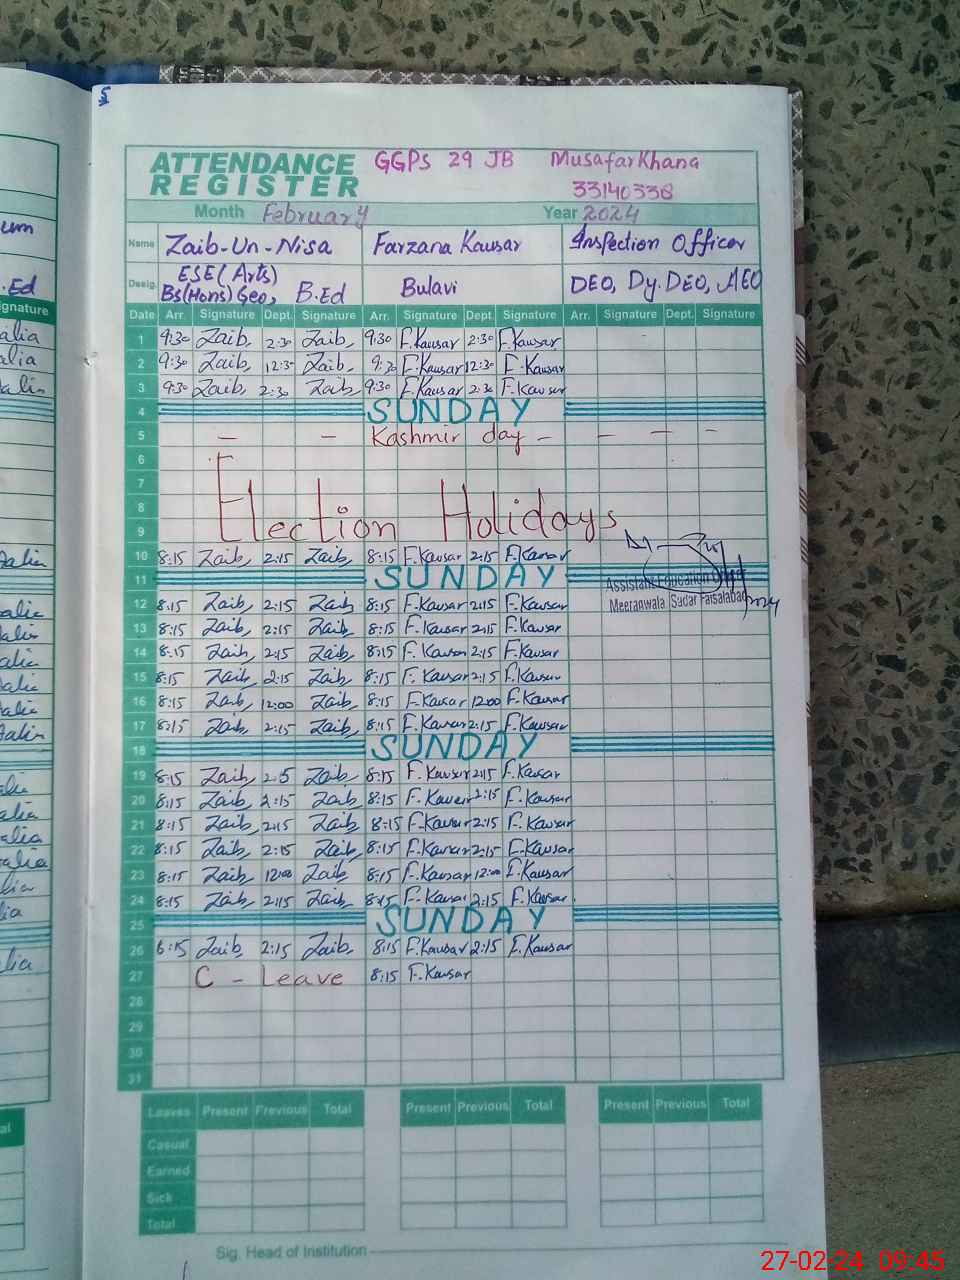 ATTENDANCE REGISTER GGPS 29 JB Musafar Khana
33140338
Month February Year 2024
Name Zaib-Un-Nisa Farzana Kausar Inspection Officer
Desig. ESE(Arts) Bs(Hons) Geo, B.Ed Bulavi DEO, Dy.DEO, AEO
Date Arr. Signature Dept. Signature Arr. Signature Dept. Signature Arr. Signature Dept. Signature
1 9:30 Zaib, 2:30 Zaib, 9:30 F.Kausar 2:30 F.Kausar
2 9:30 Zaib, 12:30 Zaib, 9:30 F.Kausar 12:30 F.Kausar
3 9:30 Zaib, 2:30 Zaib, 9:30 F.Kausar 2:30 F.Kausar
4 SUNDAY
5 - - Kashmir day - - - -
6
7
8 Election Holidays
9
10 8:15 Zaib, 2:15 Zaib, 8:15 F.Kausar 2:15 F.Kausar
11 SUNDAY
Assistant Education
Meeranwala Sadar Faisalabad
12 8:15 Zaib, 2:15 Zaib, 8:15 F.Kausar 2:15 F.Kausar
13 8:15 Zaib, 2:15 Zaib, 8:15 F.Kausar 2:15 F.Kausar
14 8:15 Zaib, 2:15 Zaib, 8:15 F.Kausar 2:15 F.Kausar
15 8:15 Zaib, 2:15 Zaib, 8:15 F.Kausar 2:15 F.Kausar
16 8:15 Zaib, 12:00 Zaib, 8:15 F.Kausar 12:00 F.Kausar
17 8:15 Zaib, 2:15 Zaib, 8:15 F.Kausar 2:15 F.Kausar
18 SUNDAY
19 8:15 Zaib, 2:15 Zaib, 8:15 F.Kausar 2:15 F.Kausar
20 8:15 Zaib, 2:15 Zaib, 8:15 F.Kausar 2:15 F.Kausar
21 8:15 Zaib, 2:15 Zaib, 8:15 F.Kausar 2:15 F.Kausar
22 8:15 Zaib, 2:15 Zaib, 8:15 F.Kausar 2:15 F.Kausar
23 8:15 Zaib, 12:00 Zaib, 8:15 F.Kausar 12:00 F.Kausar
24 8:15 Zaib, 2:15 Zaib, 8:15 F.Kausar 2:15 F.Kausar
25 SUNDAY
26 8:15 Zaib, 2:15 Zaib, 8:15 F.Kausar 2:15 F.Kausar
27 C - Leave 8:15 F.Kausar
28
29
30
31
Leaves Present Previous Total Present Previous Total Present Previous Total
Casual
Earned
Sick
Total
Sig. Head of Institution
27-02-24 09:45